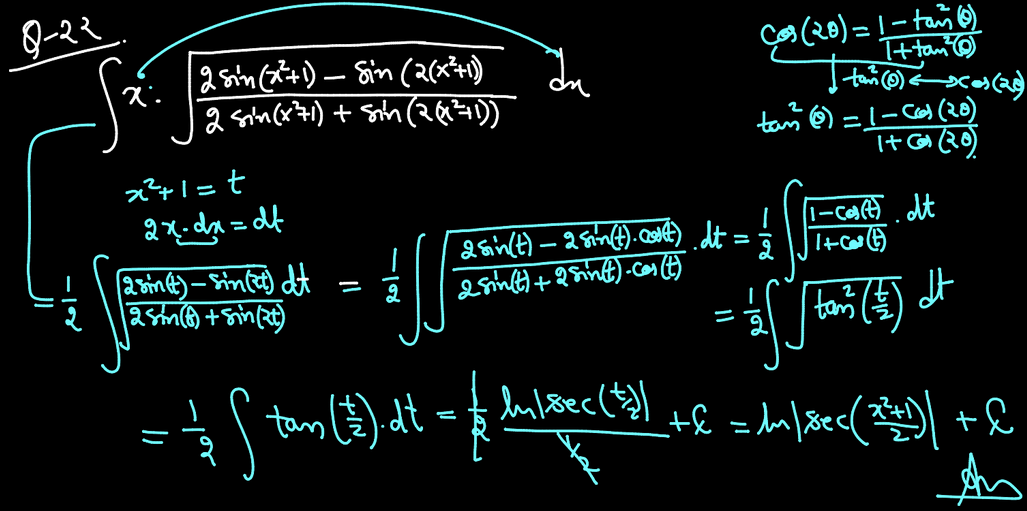 Q-22.
∫ x. √((2 sin(x²+1) - sin (2(x²+1)))/(2 sin(x²+1) + sin (2(x²+1)))) dx
cos(2θ) = (1 - tan²(θ))/(1 + tan²(θ))
tan²(θ) ⟷ cos(2θ)
tan²(θ) = (1 - cos(2θ))/(1 + cos(2θ))
x² + 1 = t
2x. dx = dt
= 1/2 ∫ √((2 sin(t) - sin(2t))/(2 sin(t) + sin(2t))) dt = 1/2 ∫ √((2 sin(t) - 2 sin(t). cos(t))/(2 sin(t) + 2 sin(t). cos(t))) . dt = 1/2 ∫ √((1 - cos(t))/(1 + cos(t))) . dt
= 1/2 ∫ √(tan²(t/2)) dt
= 1/2 ∫ tan(t/2). dt = 1/2 (ln|sec(t/2)|)/(1/2) + C = ln|sec((x²+1)/2)| + C
Ans